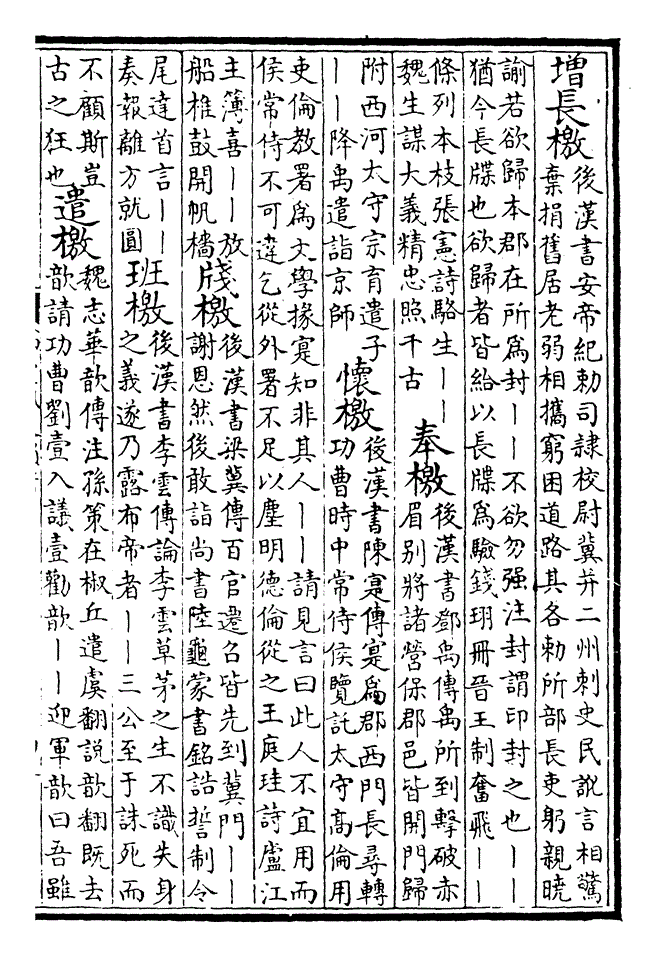 增長檄
後漢書安帝紀勅司隸校尉冀并二州刺史民訛言相驚
棄捐舊居老弱相攜窮困道路其各勅所部長吏躬親曉
諭若欲歸本郡在所為封丨丨不欲勿强注封謂印封之也丨丨
猶今長牒也欲歸者皆給以長牒為驗錢珝冊晉王制奮飛丨丨
條列本枝張憲詩駱生丨丨
魏生謀大義精忠照千古
奉檄
後漢書鄧禹傳禹所到擊破赤
眉别將諸營保郡邑皆開門歸
附西河太守宗育遣子
丨丨降禹遣詣京師
懷檄
後漢書陳寔傳寔為郡西門長尋轉
功曹時中常侍侯覽託太守高倫用
吏倫教署為文學掾寔知非其人丨丨請見言曰此人不宜用而
侯常侍不可違乞從外署不足以塵明德倫從之王庭珪詩盧江
主簿喜丨丨放
船椎鼓開帆檣
牋檄
後漢書梁冀傳百官遷召皆先到冀門丨丨
謝恩然後敢詣尚書陸龜蒙書銘誥誓制令
尾達首言丨丨
奏報離方就圓
班檄
後漢書李雲傳論李雲草茅之生不識失身
之義遂乃露布帝者丨丨三公至于誅死而
不顧斯豈
古之狂也
遣檄
魏志華歆傳注孫策在椒丘遣虞翻説歆翻既去
歆請功曹劉壹入議壹勸歆丨丨迎軍歆曰吾雖